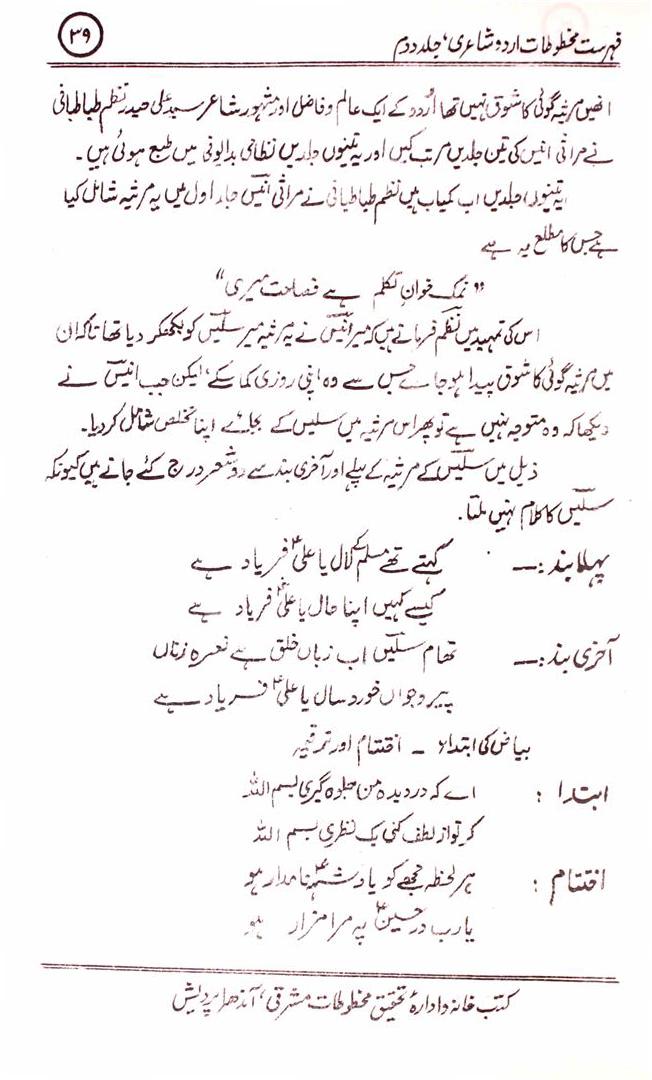 فہرست مخطوطات اردو شاعری، جلد دوم
۳۹
انھیں مرثیہ گوئی کا شوق نہیں تھا اُردو کے ایک عالم و فاضل اور مشہور شاعر سید علی حیدر نظم طباطبائی
نے مراثی انیس کی تین جلدیں مرتب کیں اور یہ تینوں جلدیں نظامی بدایونی میں طبع ہوئی ہیں ۔
یہ تینوں جلدیں اب کمیاب ہیں نظم طباطبائی نے مراثی انیس جلد اول میں یہ مرثیہ شامل کیا
ہے جس کا مطلع یہ ہے
” نمک خوانِ تکلم ہے فصاحت میری “
اس کی تمہید میں نظم فرماتے ہیں کہ میر انیس نے یہ مرثیہ میر سلیس کو لکھکر دیا تھا تاکہ ان
میں مرثیہ گوئی کا شوق پیدا ہو جائے جس سے وہ اپنی روزی کما سکے، لیکن جب انیس نے
دیکھا کہ وہ متوجہ نہیں ہے تو پھر اس مرثیہ میں سلیس کے بجائے اپنا تخلص شامل کر دیا۔
ذیل میں سلیس کے مرثیہ کے پہلے اور آخری بند سے دو شعر درج کئے جاتے ہیں کیونکہ
سلیس کا کلام نہیں ملتا۔
پہلا بند :— کہتے تھے مسلم کے لال یا علیؑ فریاد ہے
کیسے کہیں اپنا حال یا علیؑ فریاد ہے
آخری بند :— تھام سلیس اب زباں خلق ہے نعرہ زناں
پیر و جواں خورد سال یا علیؑ فریاد ہے
بیاض کی ابتداء ۔ اختتام اور ترقیمہ
ابتدا : اے کہ در دیدہ من جلوہ گری بسم اللہ
گر تو از لطف کنی یک نظری بسم اللہ
اختتام : ہر لحظہ مجھے کو یاد شہؑ نامدار ہو
یارب در حسینؑ پہ مرا مزار ہو
کتب خانہ و ادارۂ تحقیق مخطوطات مشرقی، آندھرا پردیش